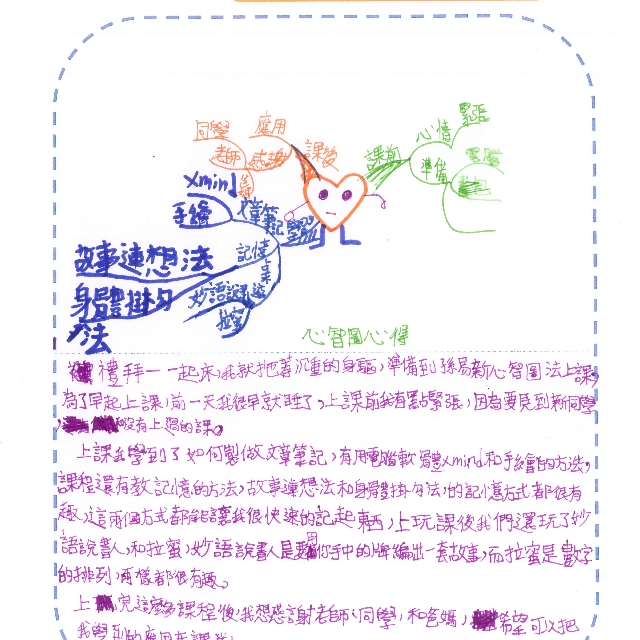 緊張
心情
同學
應用
老師
感謝
課後
課前
準備
電腦
爸媽
Xmind
手繪
文章筆記
故事連想法
記憶
身體掛勾法
妙語說書人
拉蜜
心智圖心得
禮拜一一起床,我就把著沉重的身軀,準備到孫易新心智圖法上課,
為了早起上課,前一天我很早就睡了,上課前我有點緊張,因為要見到新同學
,和沒有上過的課。
上課我學到了如何製做文章筆記,有用電腦軟體xmind和手繪的方法,
課程還有教記憶的方法,故事連想法和身體掛勾法,的記憶方式都很有
趣,這兩個方式都能讓我很快速的記起東西,上玩課後我們還玩了妙
語說書人,和拉蜜,妙語說書人是要用你手中的牌編出一套故事,而拉蜜是數字
的排列,兩樣都很有趣。
上完這多課程後,我想感謝老師、同學,和爸媽,希望可以把
我學到的應用在課業